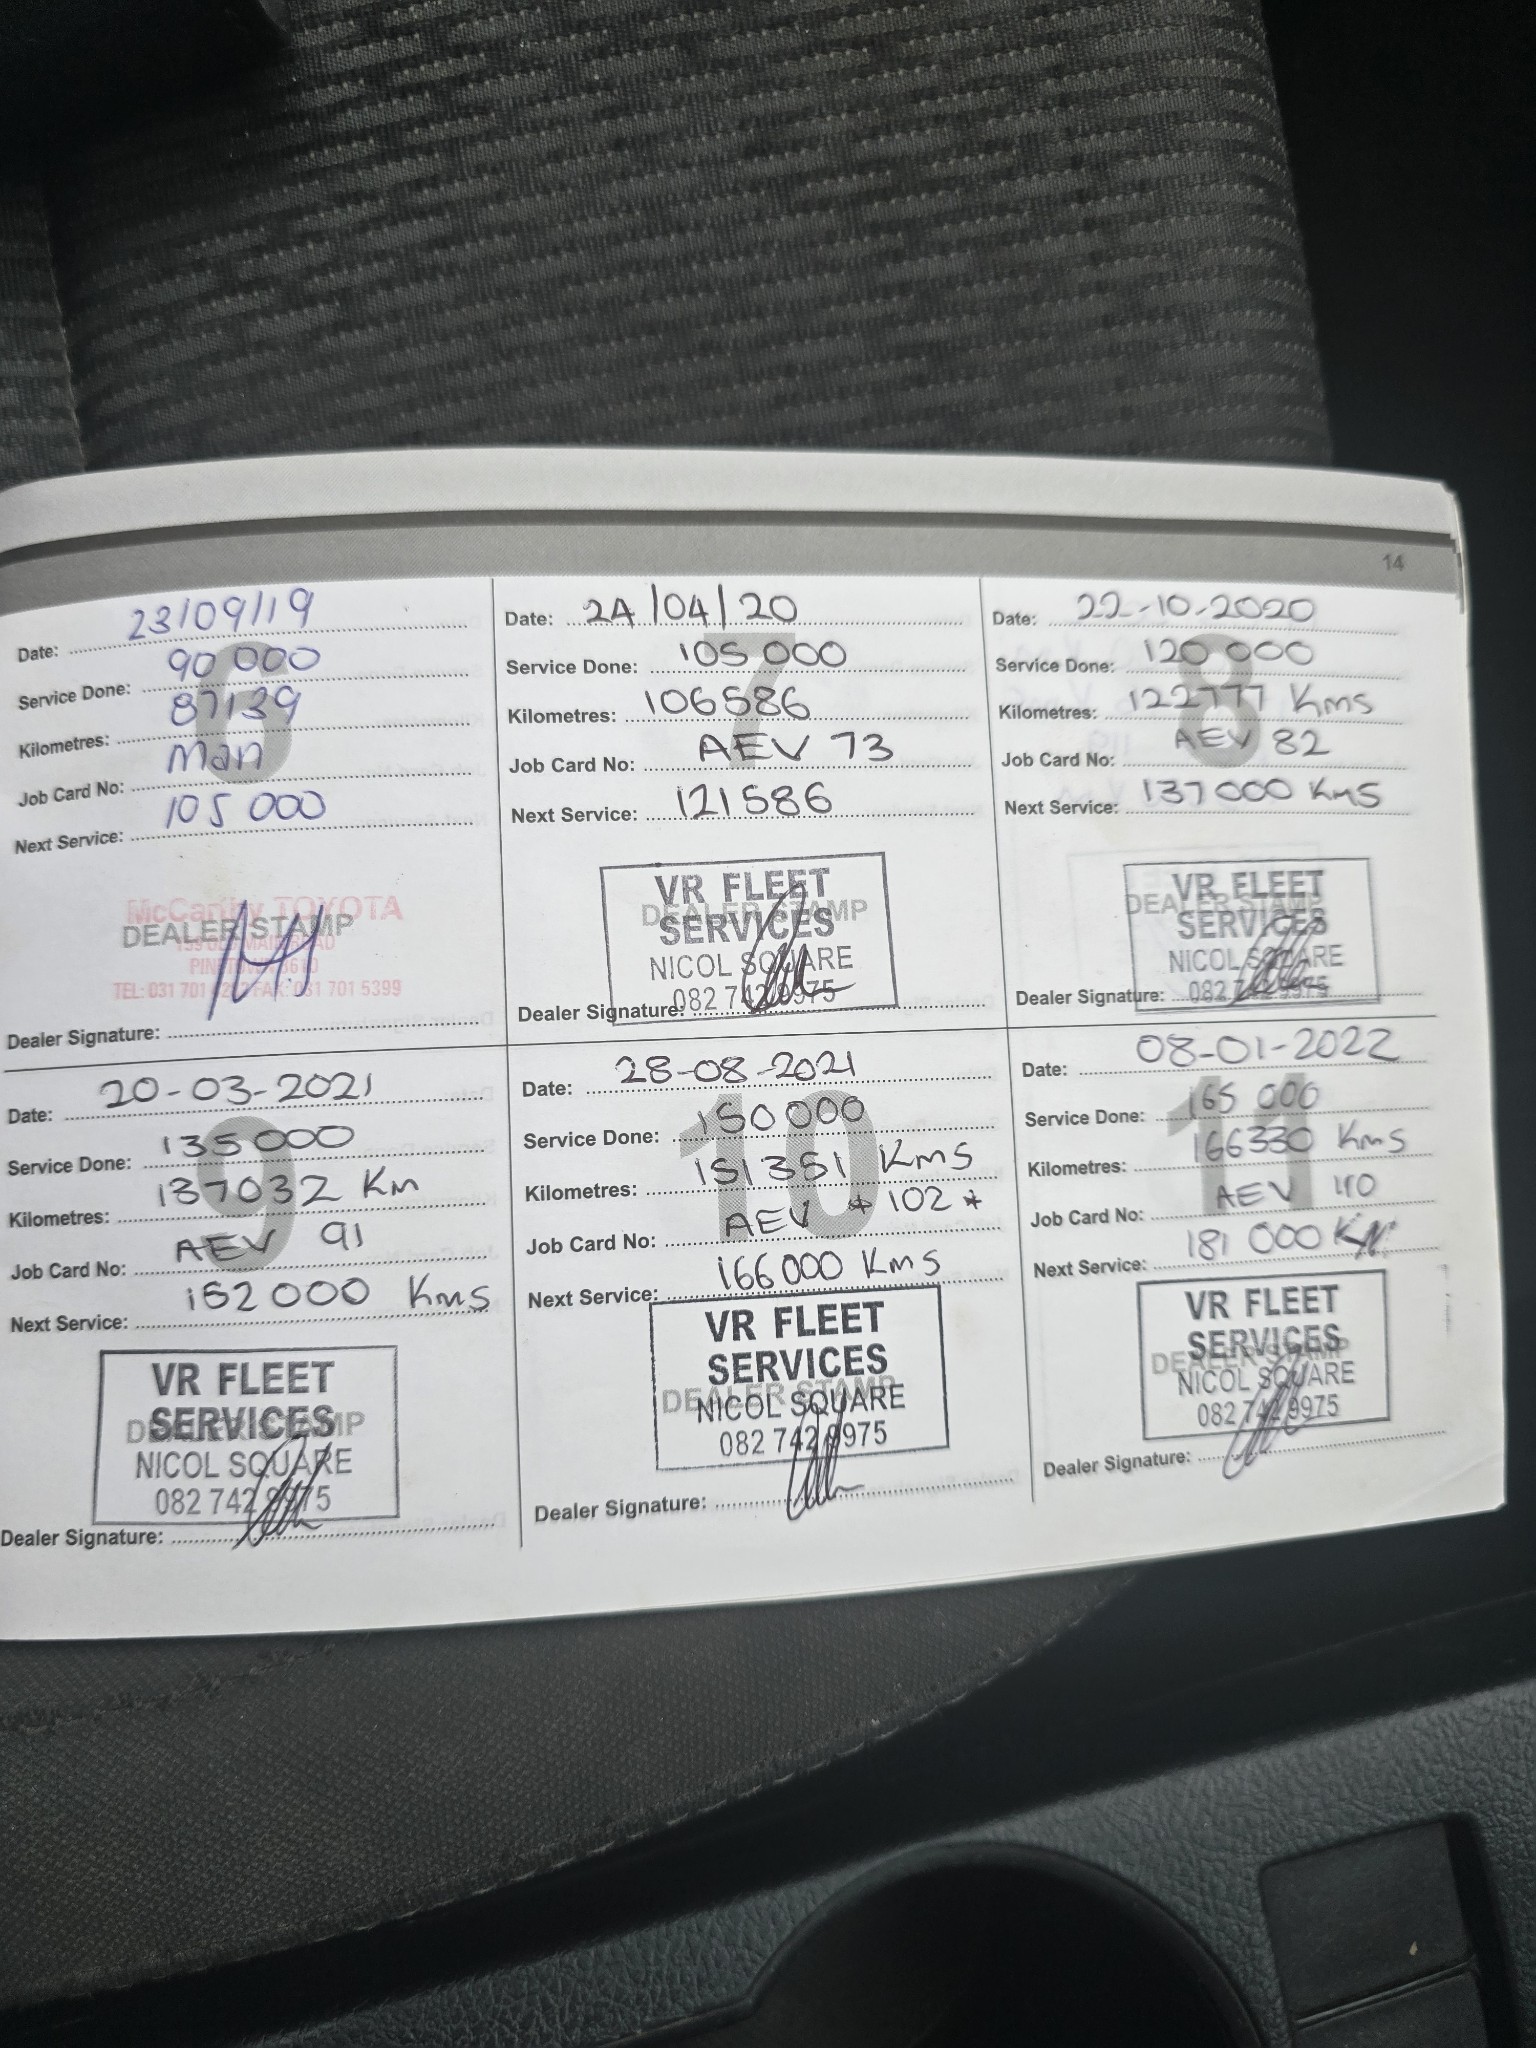 14
6
Date: 23/09/19
Service Done: 90 000
Kilometres: 87139
Job Card No: Man
Next Service: 105 000
McCarthy TOYOTA
DEALER STAMP
MAIN ROAD
PINETOWN 3610
TEL: 031 701 FAX: 031 701 5399
Dealer Signature:
7
Date: 24/04/20
Service Done: 105 000
Kilometres: 106586
Job Card No: AEV 73
Next Service: 121586
VR FLEET
DEALER STAMP
SERVICES
NICOL SQUARE
082 742 9975
Dealer Signature:
8
Date: 22-10-2020
Service Done: 120 000
Kilometres: 122777 Kms
Job Card No: AEV 82
Next Service: 137000 Kms
VR FLEET
DEALER STAMP
SERVICES
NICOL SQUARE
082 742 9975
Dealer Signature:
9
Date: 20-03-2021
Service Done: 135000
Kilometres: 137032 Km
Job Card No: AEV 91
Next Service: 152000 Kms
VR FLEET
DEALER STAMP
SERVICES
NICOL SQUARE
082 742 9975
Dealer Signature:
10
Date: 28-08-2021
Service Done: 150000
Kilometres: 151351 Kms
Job Card No: AEV * 102 *
Next Service: 166000 Kms
VR FLEET
SERVICES
DEALER STAMP
NICOL SQUARE
082 742 9975
Dealer Signature:
11
Date: 08-01-2022
Service Done: 165 000
Kilometres: 166330 Kms
Job Card No: AEV 110
Next Service: 181 000 Km
VR FLEET
SERVICES
DEALER STAMP
NICOL SQUARE
082 742 9975
Dealer Signature: